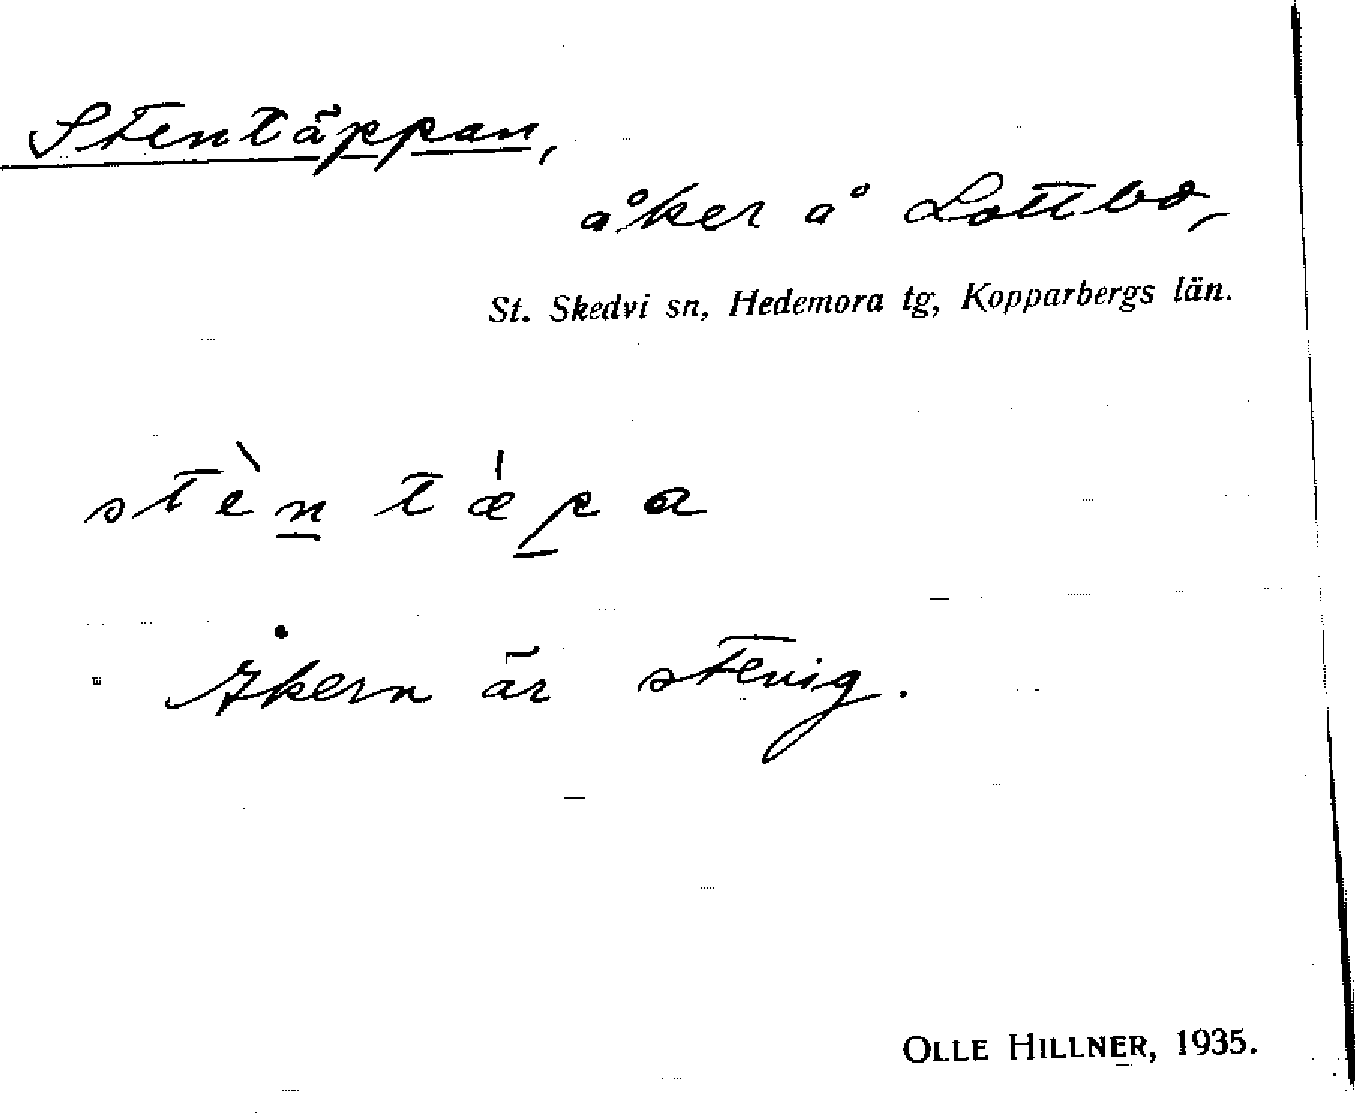 Stentäppan,
åker å Lottbo,
St. Skedvi sn, Hedemora tg, Kopparbergs län.
stèn tæ̍pa
Åkern är stenig.
OLLE HILLNER, 1935.